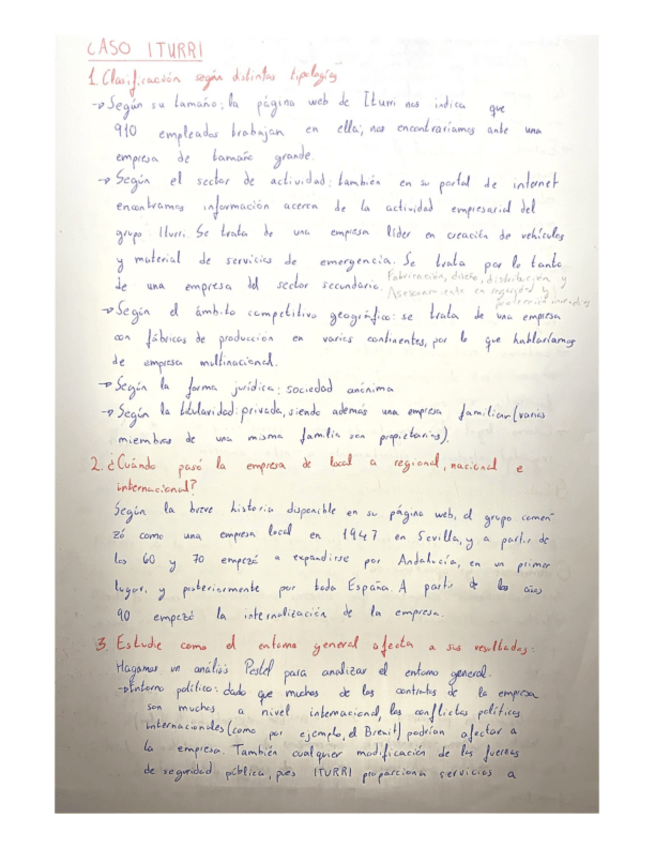 CASO ITURRI
1. Clasificación según distintas tipologías
→ Según su tamaño: la página web de Iturri nos indica que
910 empleados trabajan en ella; nos encontraríamos ante una
empresa de tamaño grande.
→ Según el sector de actividad: también en su portal de internet
encontramos información acerca de la actividad empresarial del
grupo Iturri. Se trata de una empresa líder en creación de vehículos
y material de servicios de emergencia. Se trata por lo tanto
de una empresa del sector secundario. Fabricación, diseño, distribución y
Asesoramiento en seguridad y
protección incendios
→ Según el ámbito competitivo geográfico: se trata de una empresa
con fábricas de producción en varios continentes, por lo que hablaríamos
de empresa multinacional.
→ Según la forma jurídica: sociedad anónima
→ Según la titularidad: privada, siendo además una empresa familiar (varios
miembros de una misma familia son propietarios).
2. ¿Cuándo pasó la empresa de local a regional, nacional e
internacional?
Según la breve historia disponible en su página web, el grupo comen-
zó como una empresa local en 1947 en Sevilla, y a partir de
los 60 y 70 empezó a expandirse por Andalucía, en un primer
lugar, y posteriormente por toda España. A partir de los años
90 empezó la internalización de la empresa.
3. Estudie como el entorno general afecta a sus resultados:
Hagamos un análisis Pestel para analizar el entorno general.
→ Entorno político: dado que muchos de los contratos de la empresa
son muchos a nivel internacional, los conflictos políticos
internacionales (como por ejemplo, el Brexit) podrían afectar a
la empresa. También cualquier modificación de las fuerzas
de seguridad pública, pues ITURRI proporciona servicios a